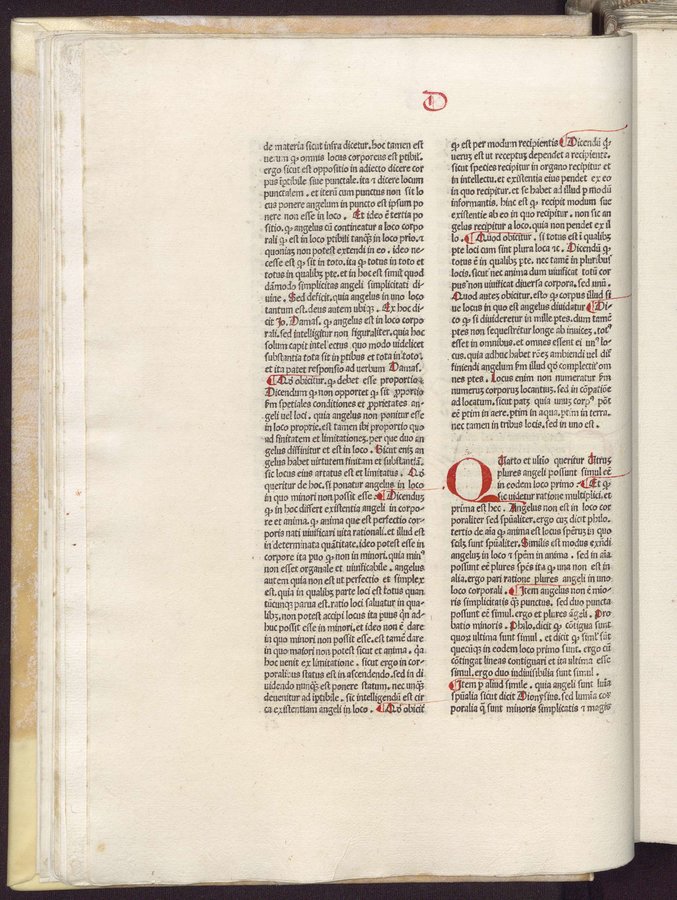 D
de materia sicut infra dicetur. hoc tamen est
uerum ꝙ omnis locus corporeus est ꝑtibił.
ergo sicut est oppositio in adiecto dicere cor
pus īptibile siue punctale. ita ⁊ dicere locum
punctalem. et iterū cum punctus non sit lo
cus ponere angelum in pūcto est ipsum po
nere non esse in loco. Et ideo ē tertia po
sitio. ꝙ angelus cū contineatur a loco corpo
rali ꝙ est in loco ꝑtibili tanꝗ̄ in loco prio. ⁊
quoniaʒ non potest extendi in eo. ideo ne-
cesse est ꝙ sit in toto. ita ꝙ totus in toto et
totus in qualibʒ ꝑte. et in hoc est simił quod
dāmodo simplicitas angeli simplicitati di-
uine. Sed deficit. quia angelus in uno loco
tantum est. deus autem ubiqʒ. Ex hoc di-
cit Jo. Damas. ꝙ angelus est in loco corpo
rali. sed intelligitur non figuraliter. quia hoc
solum capit intellectus quo modo uidelicet
substantia tota sit in ꝑtibus et tota in toto.
et ita patet responsio ad uerbum Damas.
Qō obicitur. ꝙ debet esse proportio ⁊c
Dicendum ꝙ non opportet ꝙ sit ꝓportio
ẜm spetiales conditiones et ꝓprietates an-
geli uel loci. quia angelus non ponitur esse
in loco proprie. est tamen ibi proportio quo
ad finitatem et limitationeʒ. per que duo an
gelus diffinitur et est in loco. Sicut eniʒ an
gelus habet uirtutem finitam et substantiā.
sic locus eius artatus est et limitatus. Qō
queritur de hoc. si ponatur angelus in loco
in quo minori non possit esse. Dicenduʒ
ꝙ in hoc differt existentia angeli in corpo-
re et anima. ꝙ anima que est perfectio cor-
poris nati uiuificari uita rationali. et illud est
in determinata quātitate. ideo potest esse in
corpore ita ꝑuo ꝙ non in minori. quia minꝰ
non esset organale et uiuificabile. angelus
autem quia non est ut perfectio et simplex
est. quia in qualibʒ parte loci est totus quan
tūcunqʒ parua est. ratio loci saluatur in qua-
libʒ. non potest accipi locus ita ꝑuus qn̄ ad-
huc possit esse in minori. et ideo non ē dare
in quo minori non possit esse. est tamē dare
in quo maiori non potest sicut et anima. qa
hoc uenit ex limitatione. sicut ergo in cor-
poralibus status est in ascendendo. sed in di
uidendo nunꝗ̄ est ponere statum. nec unꝗ̄
deuenitur ad īptibile. sic intelligendū est cir
ca existentiam angeli in loco. Qō obicit
ꝙ est per modum recipientis Dicendū ꝙ-
ueruʒ est ut receptuʒ dependet a recipiente.
sicut species recipitur in organo recipitur et
in intellectu. et existentia eius pendet ex eo
in quo recipitur. et se habet ad illud ꝑ modū
informantis. hinc est ꝙ recipit modum sue
existentie ab eo in quo recipitur. non sic an
gelus recipitur a loco. quia non pendet ex il
lo. Quod obicitur. si totus est ī qualibʒ
ꝑte loci cum sint plura loca ⁊c. Dicendū ꝙ
totus ē in qualibʒ ꝑte. nec tamē in pluribus
locis. sicut nec anima dum uiuificat totū cor
pus non uiuificat diuersa corpora. sed unū.
Quod auteʒ obicitur. esto ꝙ corpus illud si
ue locus in quo est angelus diuidatur Di-
co ꝙ si diuideretur in mille ꝑtes. dum tamē
ꝑtes non sequestrētur longe ab inuiceʒ. totꝰ
esset in omnibus. et omnes essent ei unꝰ lo-
cus. quia adhuc habet rōeʒ ambiendi uel dif
finiendi angelum ẜm illud ꝙ complectit om
nes ꝑtes. Locus enim non numeratur ẜm
numeruʒ corporuʒ locantiuʒ. sed in cōpatiōe
ad locatum. sicut patʒ quia unuʒ corpꝰ pōt
eē ꝑtim in aere. ꝑtim in aqua. ꝑtim in terra.
nec tamen in tribus locis. sed in uno est.
QUarto et ultīo queritur Utruʒ
plures angeli possunt simul esse
in eodem loco primo. Et ꝙ
sic uidetur ratione multiplici. et
prima est hec. Angelus non est in loco cor
poraliter sed spūaliter. ergo cuʒ dicit philo.
tertio de aīa ꝙ anima est locus spērum in quo
scilʒ sunt spūaliter. Similis est modus exn̄di
angeluʒ in loco ⁊ spēm in anima. sed in aīa
possunt eē plures spēs ita ꝙ una non est in
alia. ergo pari ratione plures angeli in uno
loco corporali. Item angelus non ē mīo-
ris simplicitatis ꝗ̄ punctus. sed duo puncta
possunt eē simul. ergo et plures āgeli. Pro
batio minoris. Philo. dicit ꝙ cōtigua sunt
quoꝝ ultima sunt simul. et dicit ꝙ simł sūt
quecūqʒ in eodem loco primo sunt. ergo cū
cōtingat lineas contiguari et ita ultima esse
simul. ergo duo indiuisibilia sunt simul.
Item ꝑ aliud simile. quia angeli sunt lumīa
spūalia sicut dicit Dionysius. sed lumīa cor
poralia ꝗ̄ sunt minoris simplicatis ⁊ magis